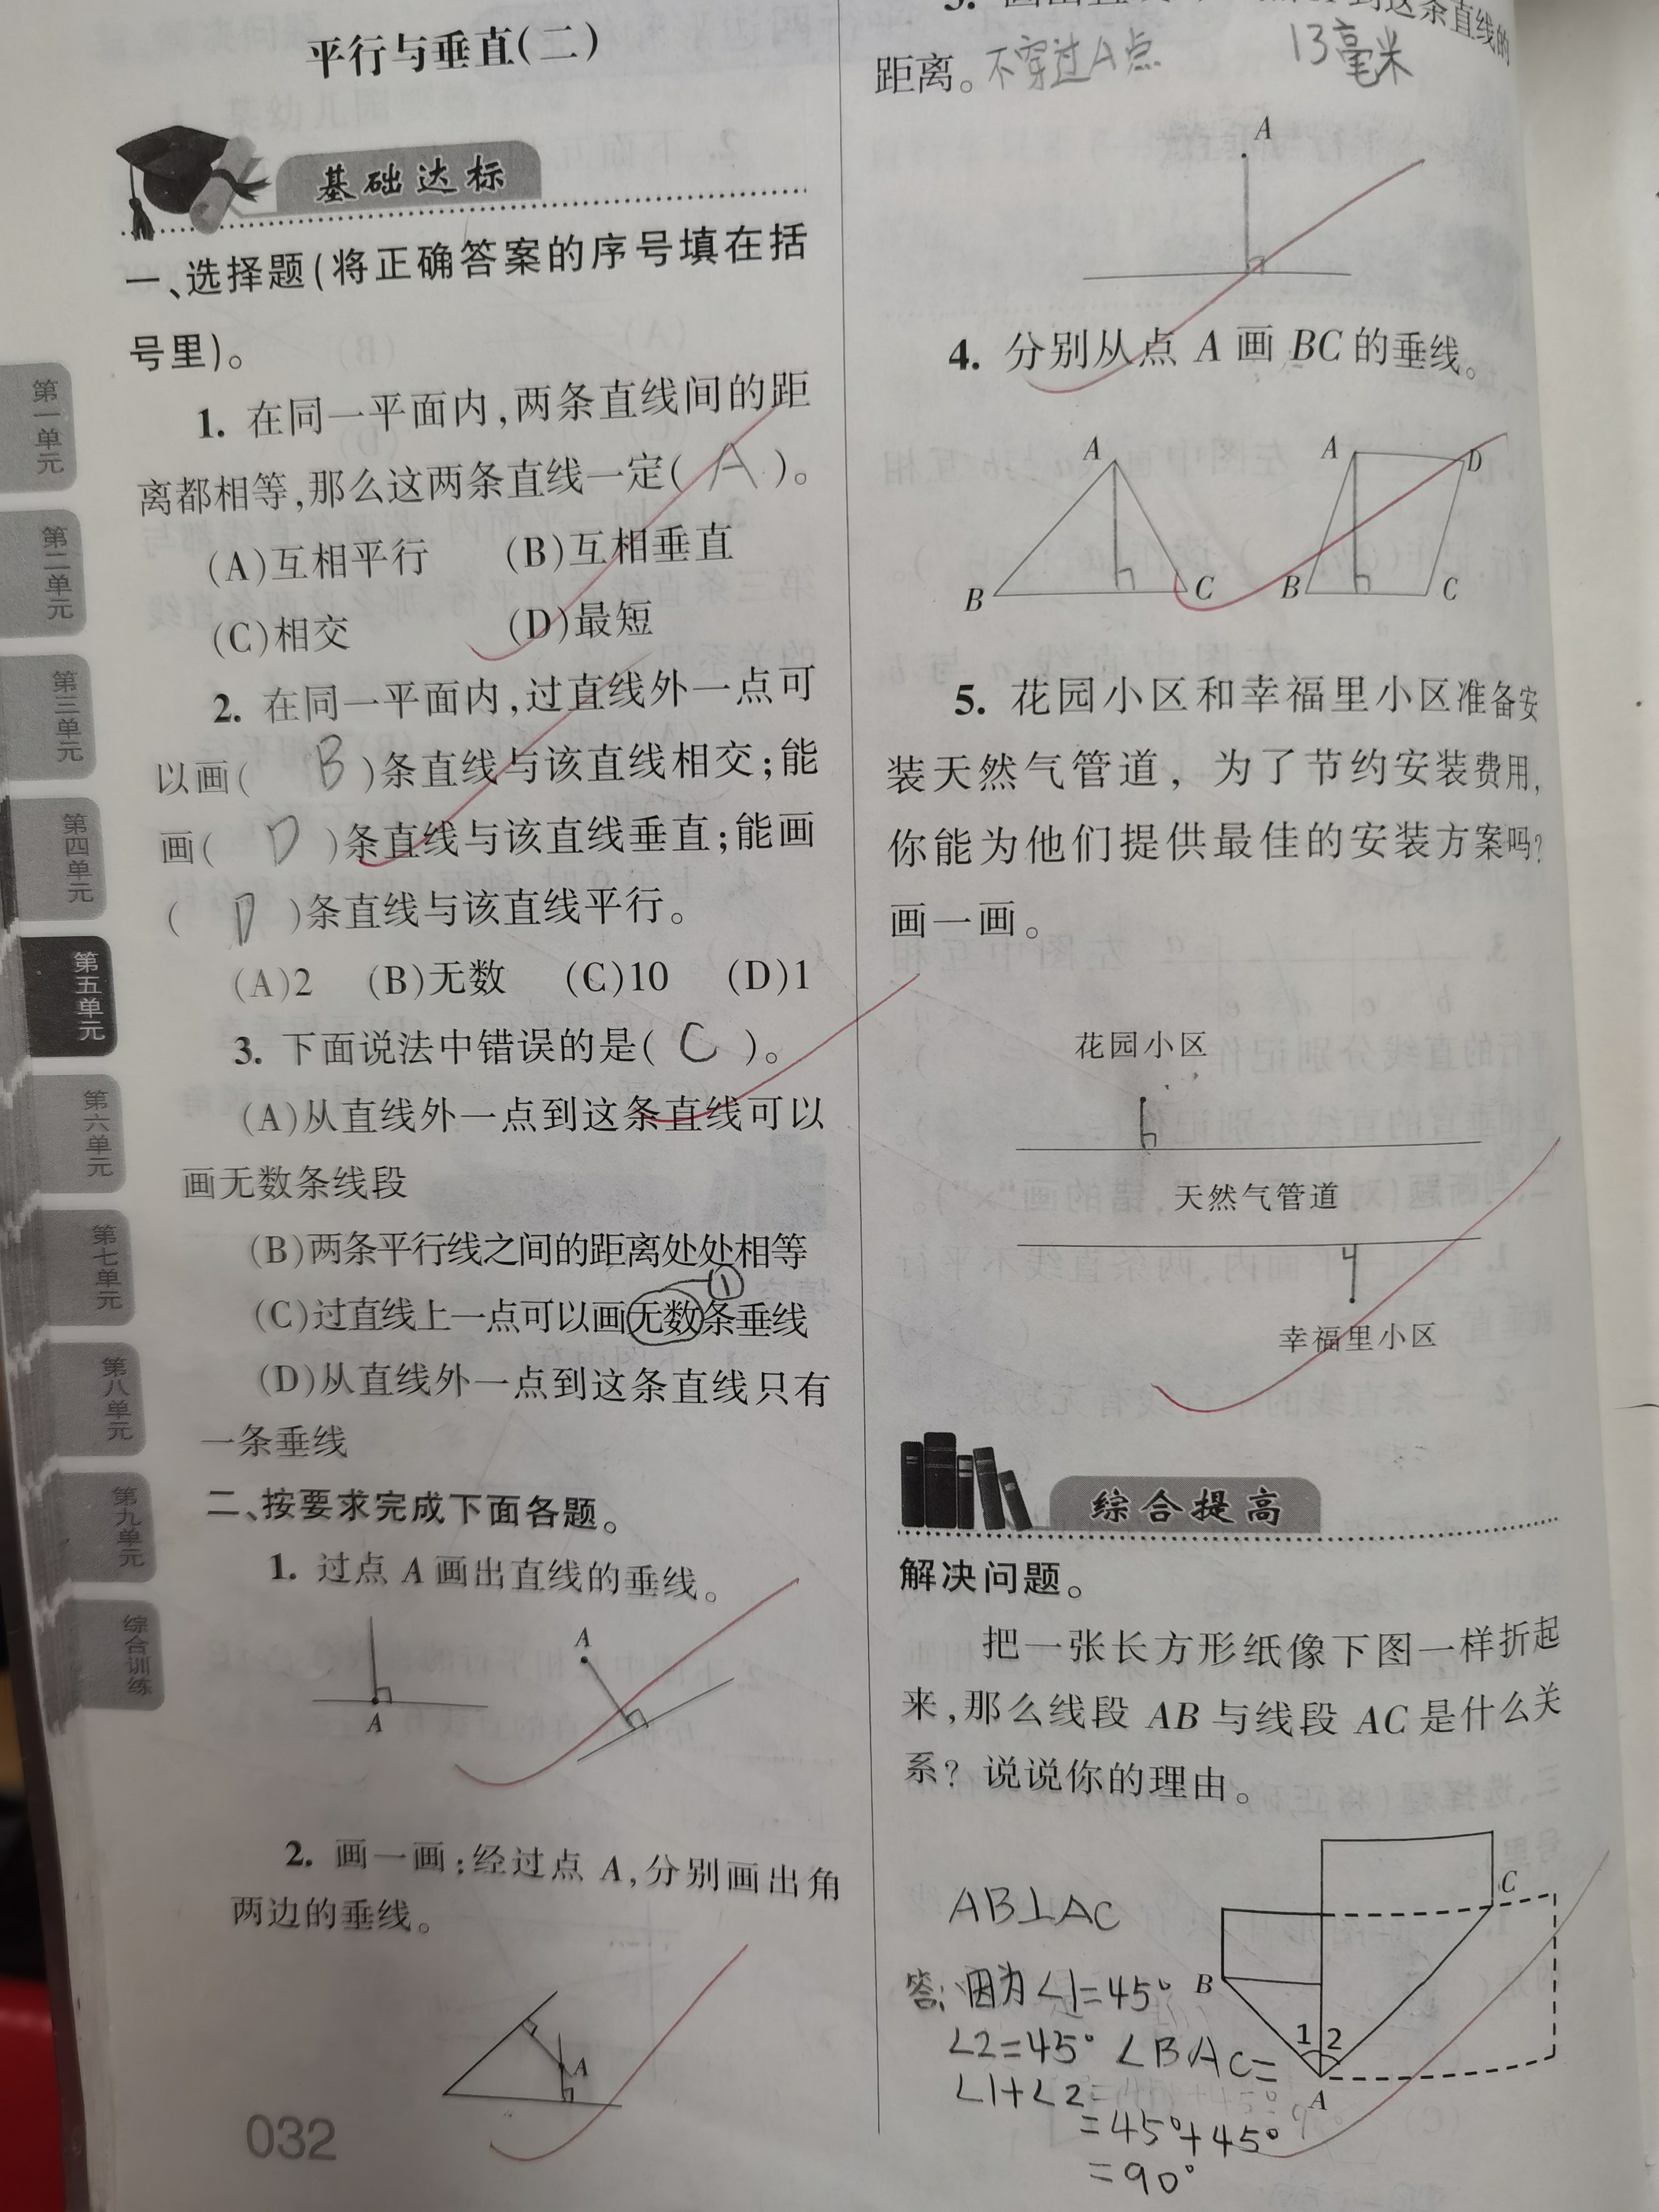 平行与垂直(二)
基础达标
一、选择题(将正确答案的序号填在括
号里)。
1. 在同一平面内,两条直线间的距
离都相等,那么这两条直线一定( A )。
(A)互相平行 (B)互相垂直
(C)相交 (D)最短
2. 在同一平面内,过直线外一点可
以画( B )条直线与该直线相交;能
画( D )条直线与该直线垂直;能画
( D )条直线与该直线平行。
(A)2 (B)无数 (C)10 (D)1
3. 下面说法中错误的是( C )。
(A)从直线外一点到这条直线可以
画无数条线段
(B)两条平行线之间的距离处处相等
①
(C)过直线上一点可以画无数条垂线
(D)从直线外一点到这条直线只有
一条垂线
二、按要求完成下面各题。
1. 过点 A 画出直线的垂线。
A
A
2. 画一画:经过点 A,分别画出角
两边的垂线。
A
032
第一单元
第二单元
第三单元
第四单元
第五单元
第六单元
第七单元
第八单元
第九单元
综合训练
到这条直线的
距离。不穿过A点 13毫米
A
4. 分别从点 A 画 BC 的垂线。
A A D
B C B C
5. 花园小区和幸福里小区准备安
装天然气管道,为了节约安装费用,
你能为他们提供最佳的安装方案吗?
画一画。
花园小区
天然气管道
幸福里小区
综合提高
解决问题。
把一张长方形纸像下图一样折起
来,那么线段 AB 与线段 AC 是什么关
系?说说你的理由。
C
B
1 2
A
AB⊥AC
答:因为∠1=45°
∠2=45° ∠BAC=
∠1+∠2
=45°+45°
=90°